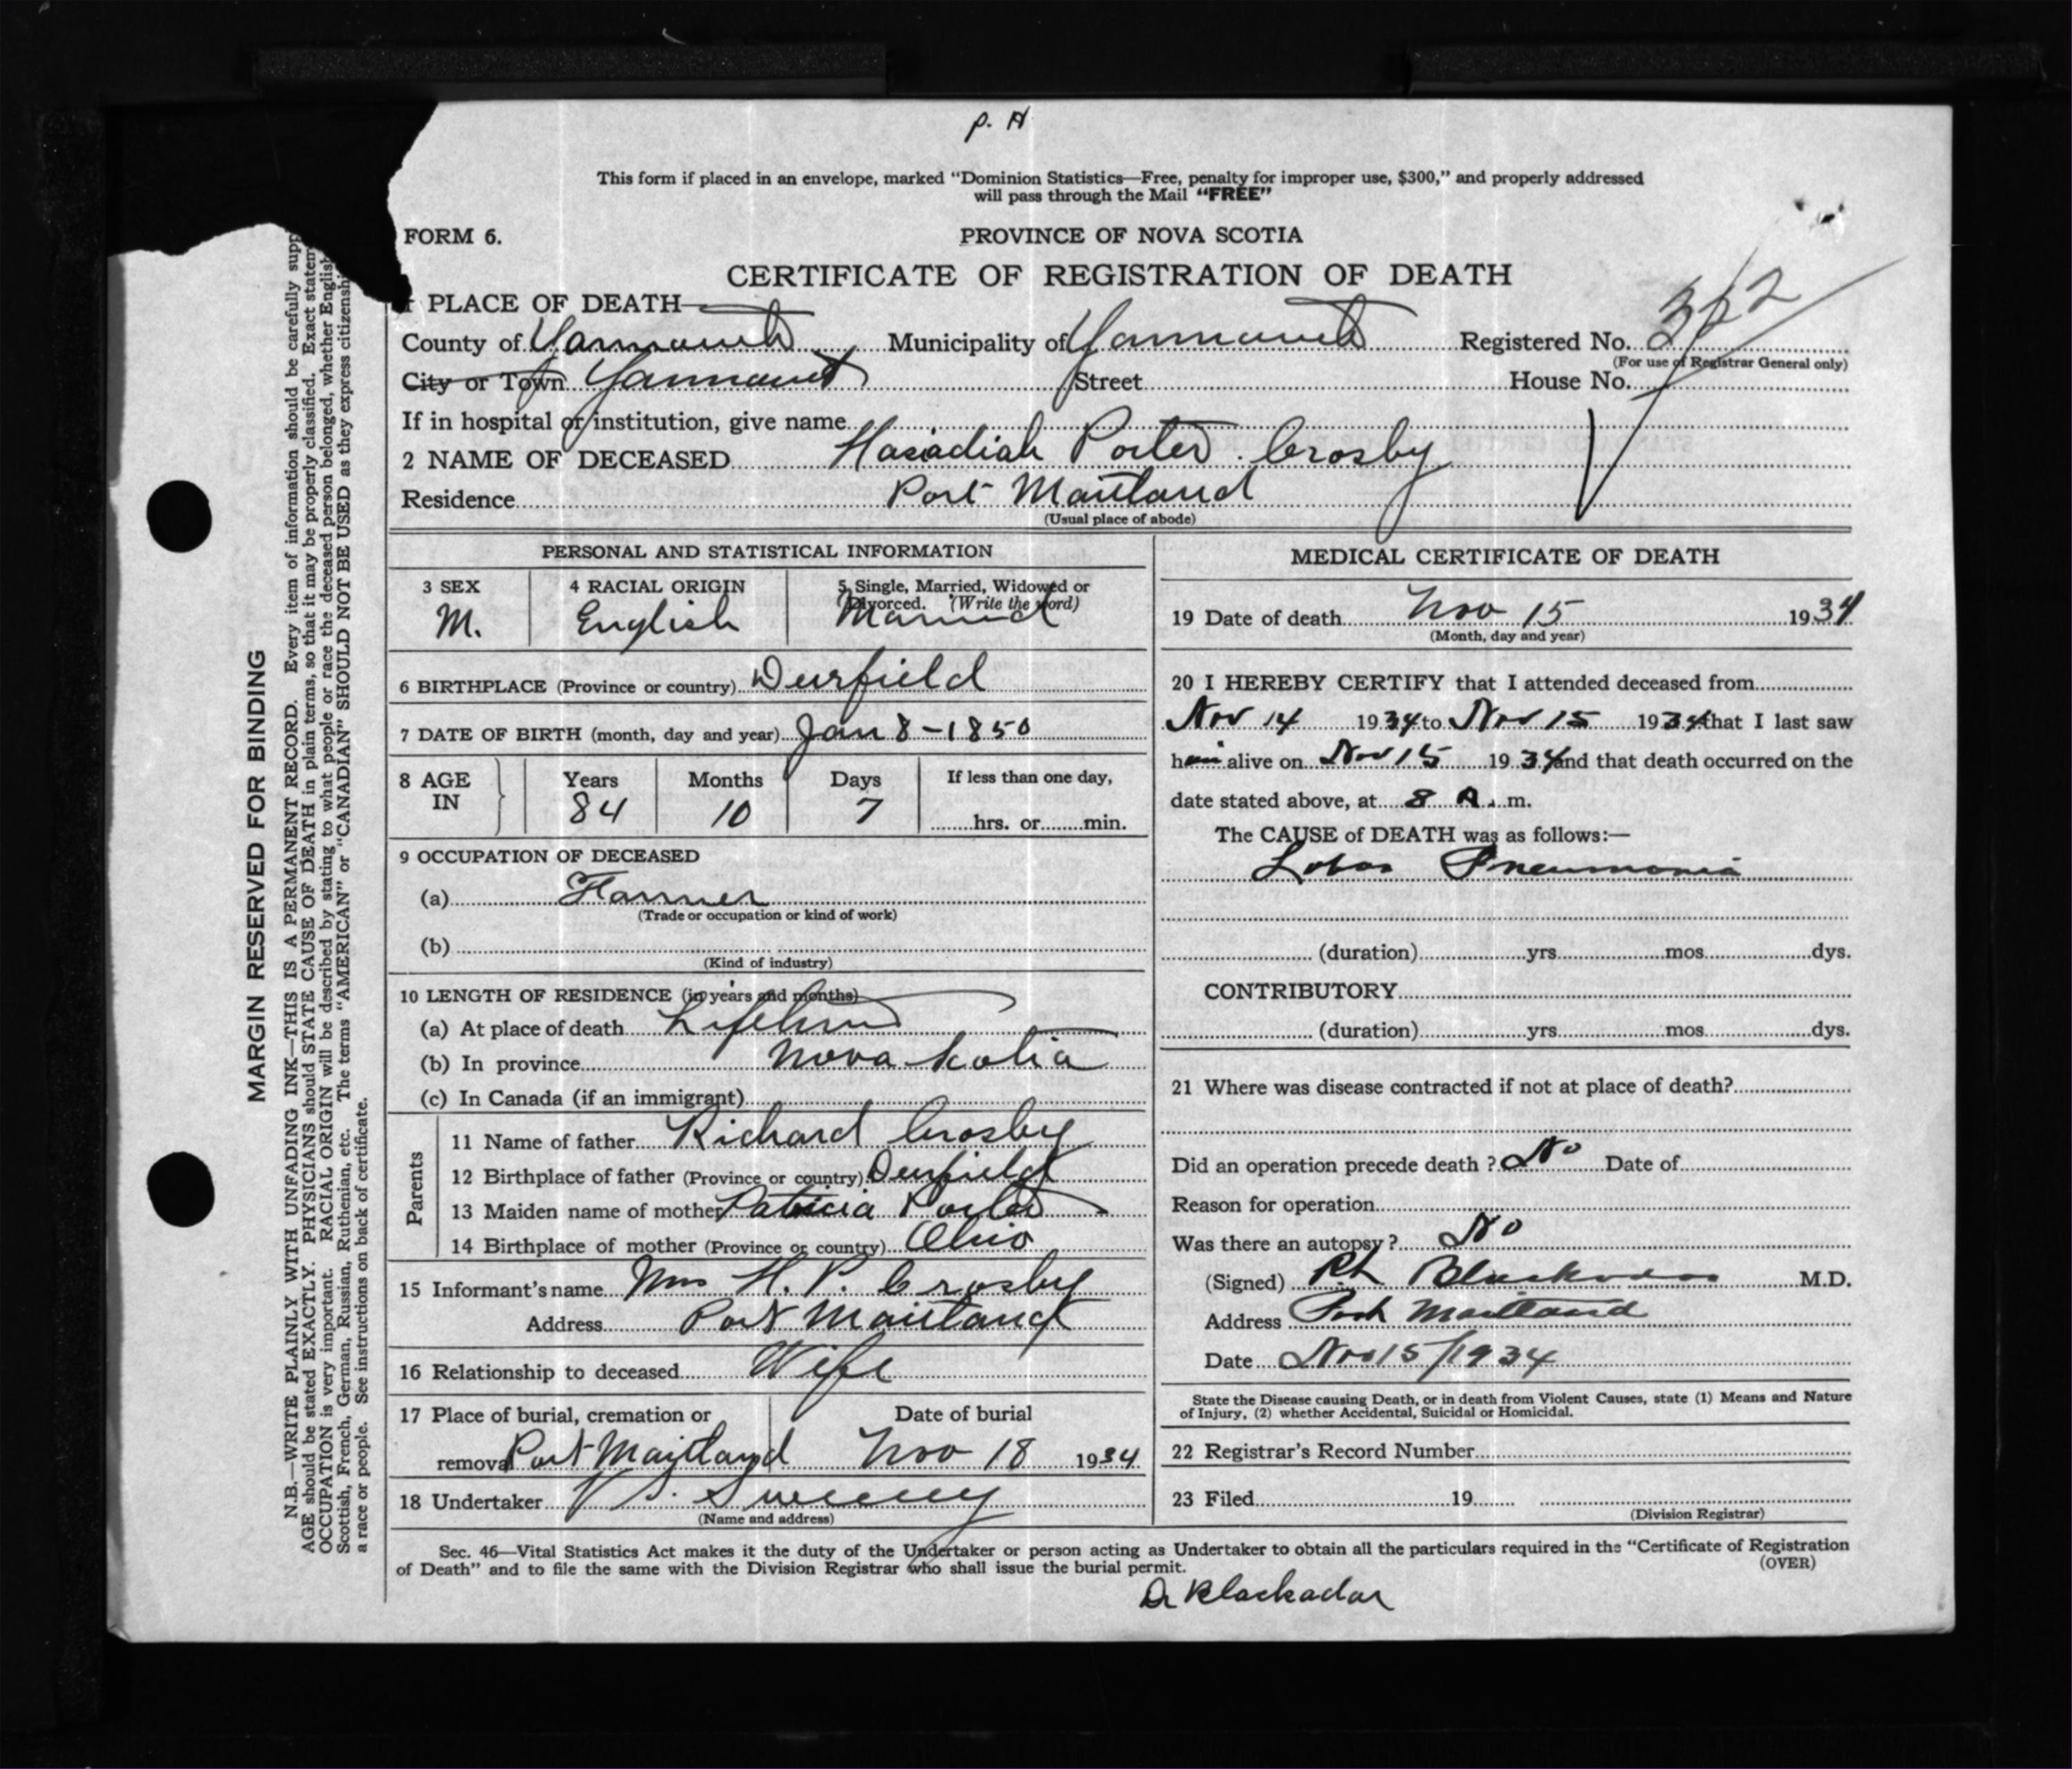 P. H
This form if placed in an envelope, marked "Dominion Statistics—Free, penalty for improper use, $300," and properly addressed
will pass through the Mail "FREE"
FORM 6.
PROVINCE OF NOVA SCOTIA
CERTIFICATE OF REGISTRATION OF DEATH
1 PLACE OF DEATH
County of Yarmouth Municipality of Yarmouth Registered No.
(For use of Registrar General only)
City or Town Yarmouth Street House No.
If in hospital or institution, give name
2 NAME OF DECEASED Porter Crosby
Residence Port Maitland
(Usual place of abode)
PERSONAL AND STATISTICAL INFORMATION
3 SEX 4 RACIAL ORIGIN 5 Single, Married, Widowed or
Divorced. (Write the word)
M. English Married
6 BIRTHPLACE (Province or country) Deerfield
7 DATE OF BIRTH (month, day and year) Jan 8 - 1850
8 AGE IN Years Months Days If less than one day,
84 10 7 hrs. or min.
9 OCCUPATION OF DECEASED
(a) Farmer
(Trade or occupation or kind of work)
(b)
(Kind of industry)
10 LENGTH OF RESIDENCE (in years and months)
(a) At place of death Lifetime
(b) In province Nova Scotia
(c) In Canada (if an immigrant)
Parents
11 Name of father Richard Crosby
12 Birthplace of father (Province or country) Deerfield
13 Maiden name of mother Patricia Porter
14 Birthplace of mother (Province or country) Ohio
15 Informant's name Mrs H. P. Crosby
Address Port Maitland
16 Relationship to deceased Wife
17 Place of burial, cremation or Date of burial
removal Port Maitland Nov 18 1934
18 Undertaker V S. Sweeny
(Name and address)
MEDICAL CERTIFICATE OF DEATH
19 Date of death Nov 15 1934
(Month, day and year)
20 I HEREBY CERTIFY that I attended deceased from
Nov 14 1934 to Nov 15 1934 that I last saw
him alive on Nov 15 1934 and that death occurred on the
date stated above, at 8 A. m.
The CAUSE of DEATH was as follows:—
Lobar Pneumonia
(duration) yrs. mos. dys.
CONTRIBUTORY
(duration) yrs. mos. dys.
21 Where was disease contracted if not at place of death?
Did an operation precede death ? No Date of
Reason for operation
Was there an autopsy ? No
(Signed) Blackadar M.D.
Address Port Maitland
Date Nov 15/1934
State the Disease causing Death, or in death from Violent Causes, state (1) Means and Nature
of Injury, (2) whether Accidental, Suicidal or Homicidal.
22 Registrar's Record Number
23 Filed 19
(Division Registrar)
Sec. 46—Vital Statistics Act makes it the duty of the Undertaker or person acting as Undertaker to obtain all the particulars required in the "Certificate of Registration
of Death" and to file the same with the Division Registrar who shall issue the burial permit.
(OVER)
Dr Blackadar
MARGIN RESERVED FOR BINDING
N.B.—WRITE PLAINLY WITH UNFADING INK—THIS IS A PERMANENT RECORD. Every item of information should be carefully supp
AGE should be stated EXACTLY. PHYSICIANS should STATE CAUSE OF DEATH in plain terms, so that it may be properly classified. Exact statem
OCCUPATION is very important. RACIAL ORIGIN will be described by stating to what people or race the deceased person belonged, whether English
Scottish, French, German, Russian, Ruthenian, etc. The terms "AMERICAN" or "CANADIAN" SHOULD NOT BE USED as they express citizenshi
a race or people. See instructions on back of certificate.